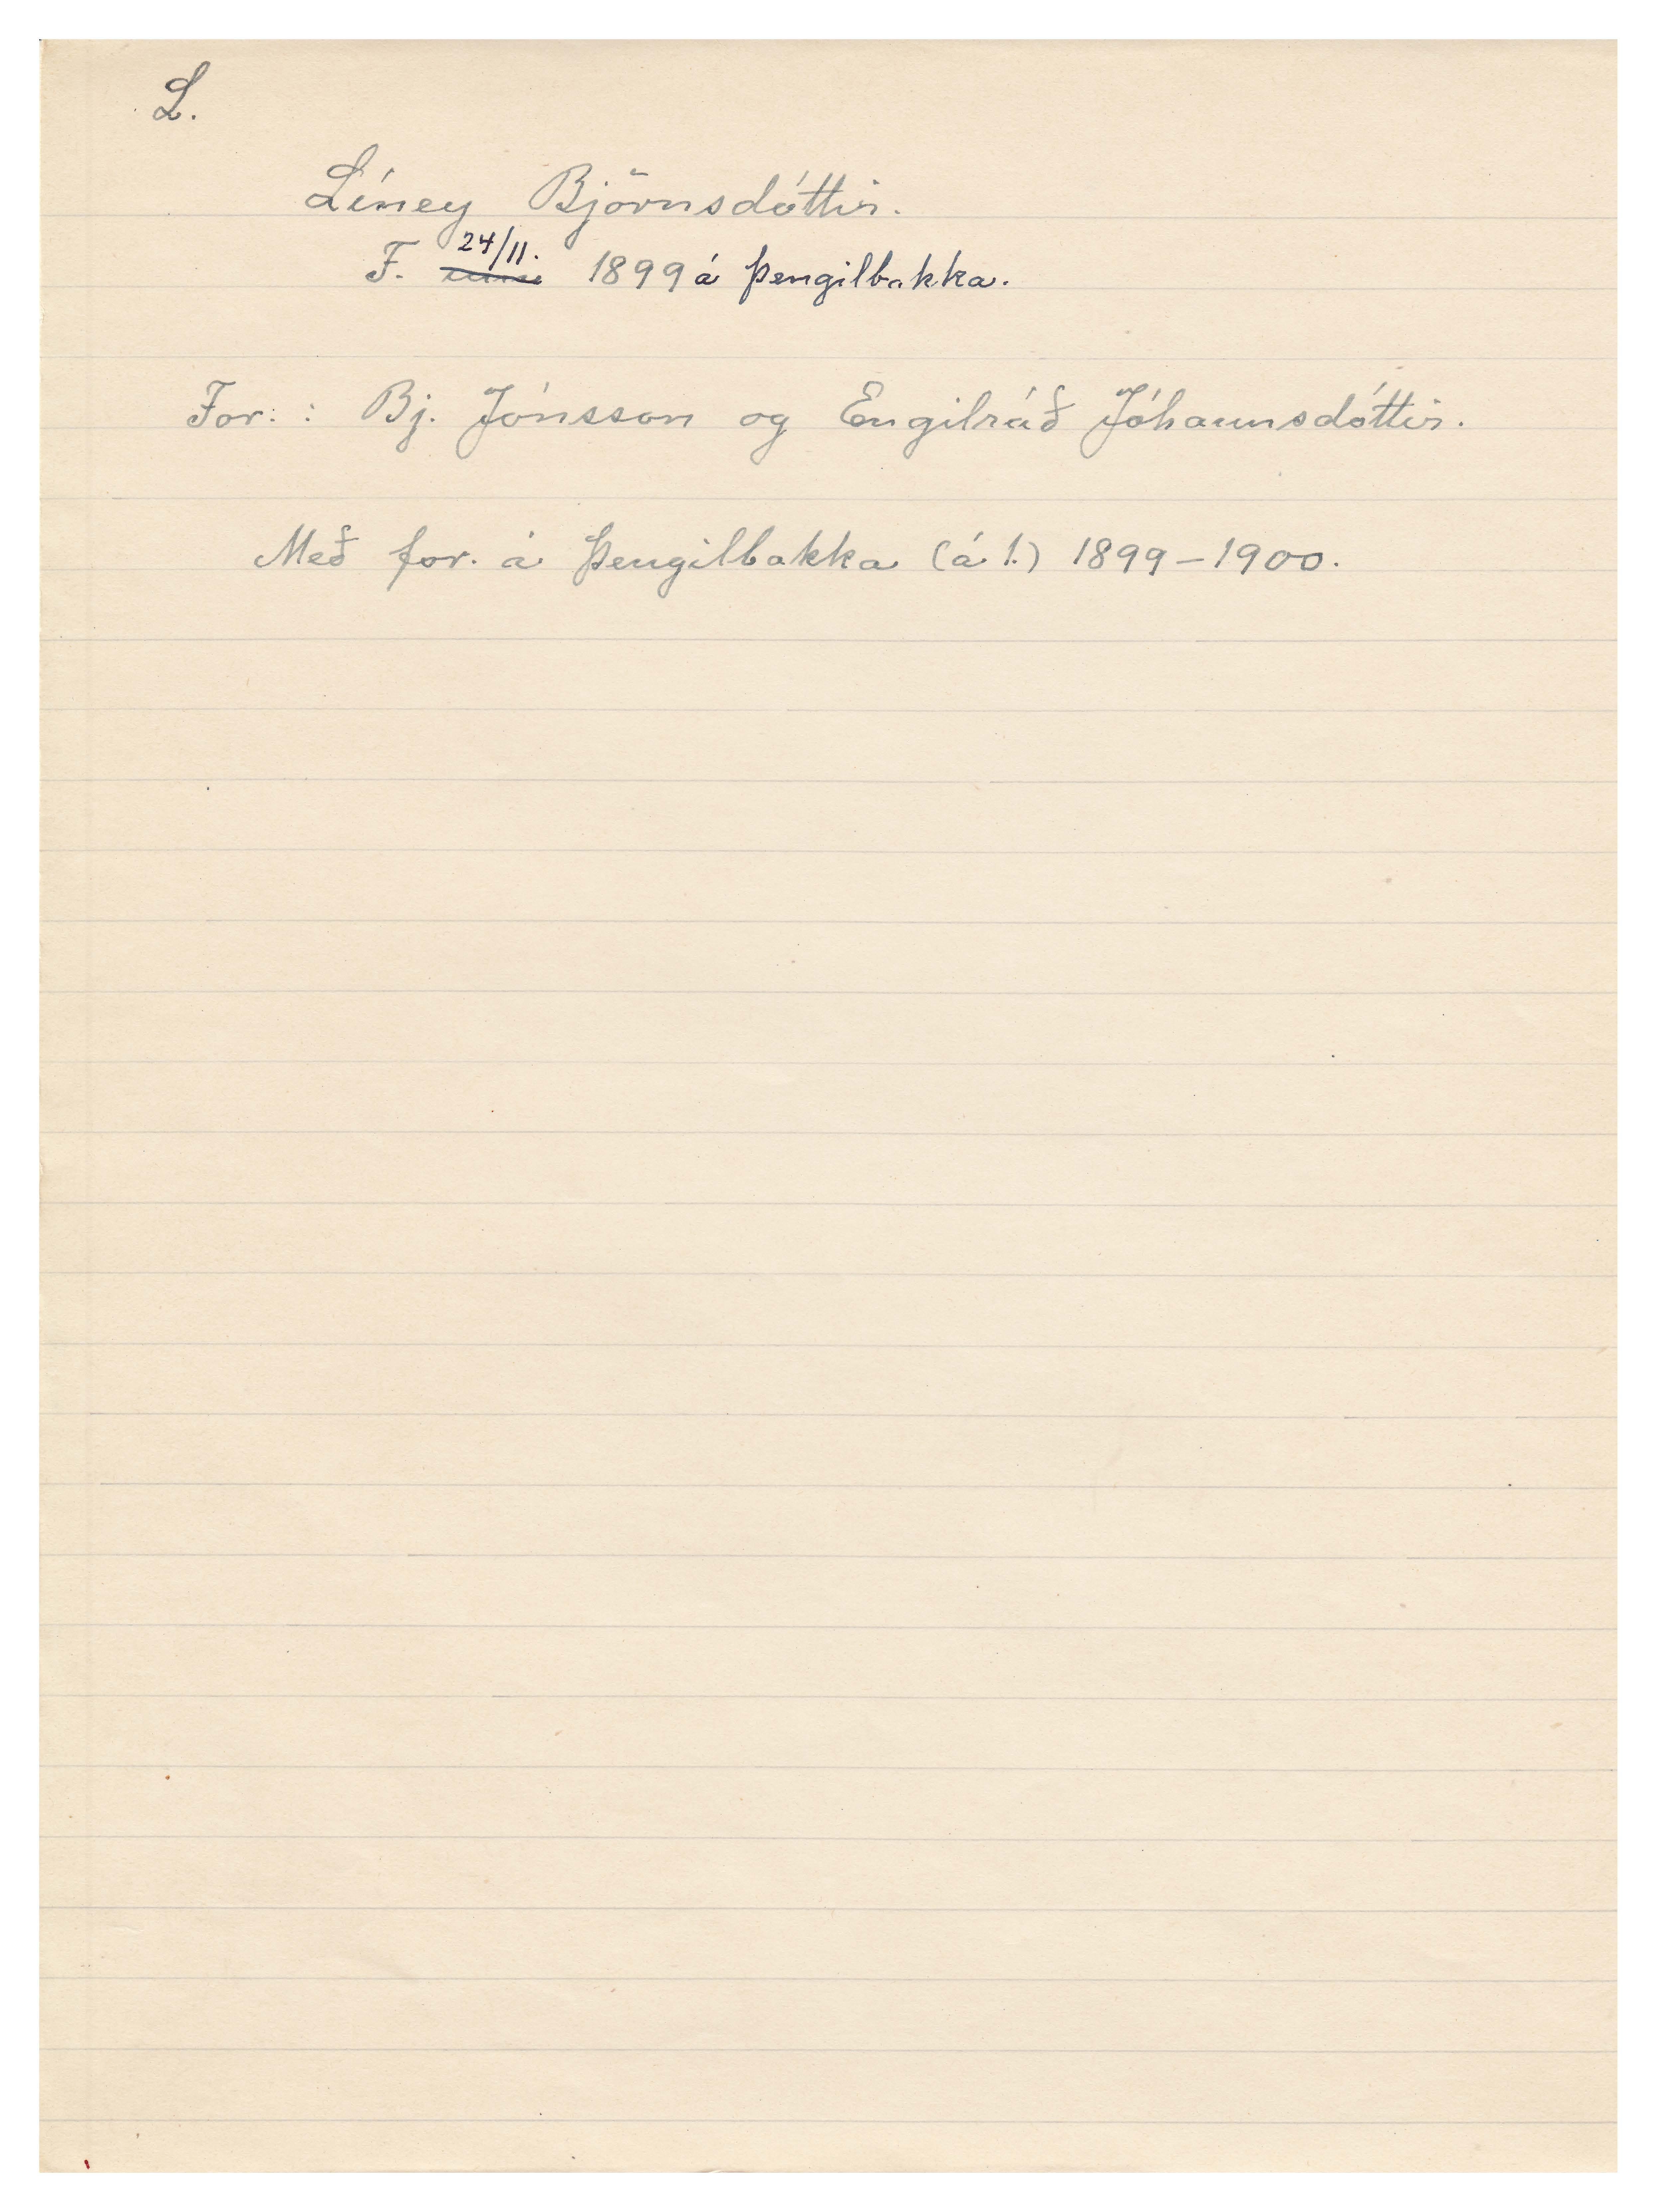 L.
Líney Björnsdóttir.
F. 24/11. 1899 á Þengilbakka.
For.: Bj. Jónsson og Engilráð Jóhannsdóttir.
Með for. á Þengilbakka (á 1.) 1899-1900.